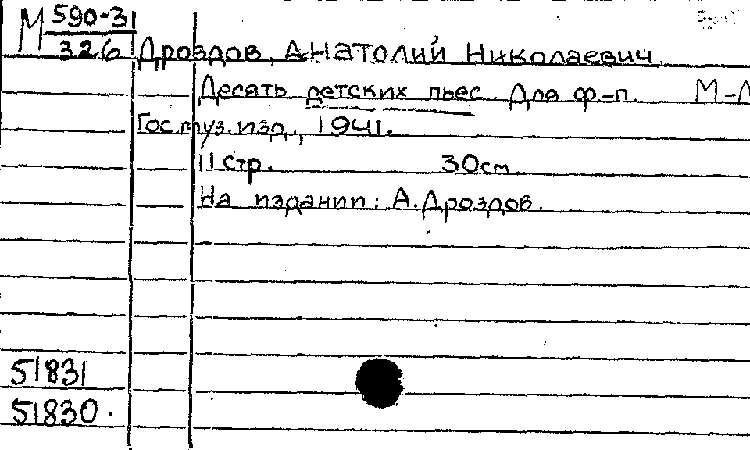 М 590-3
326
Дроздов, Анатолий Николаевич
Десять детских пьес. Для ф.-п. М-Л
Гос.муз.изд., 1941.
11 стр. 30см
На издании: А.Дроздов.
51831
51830.